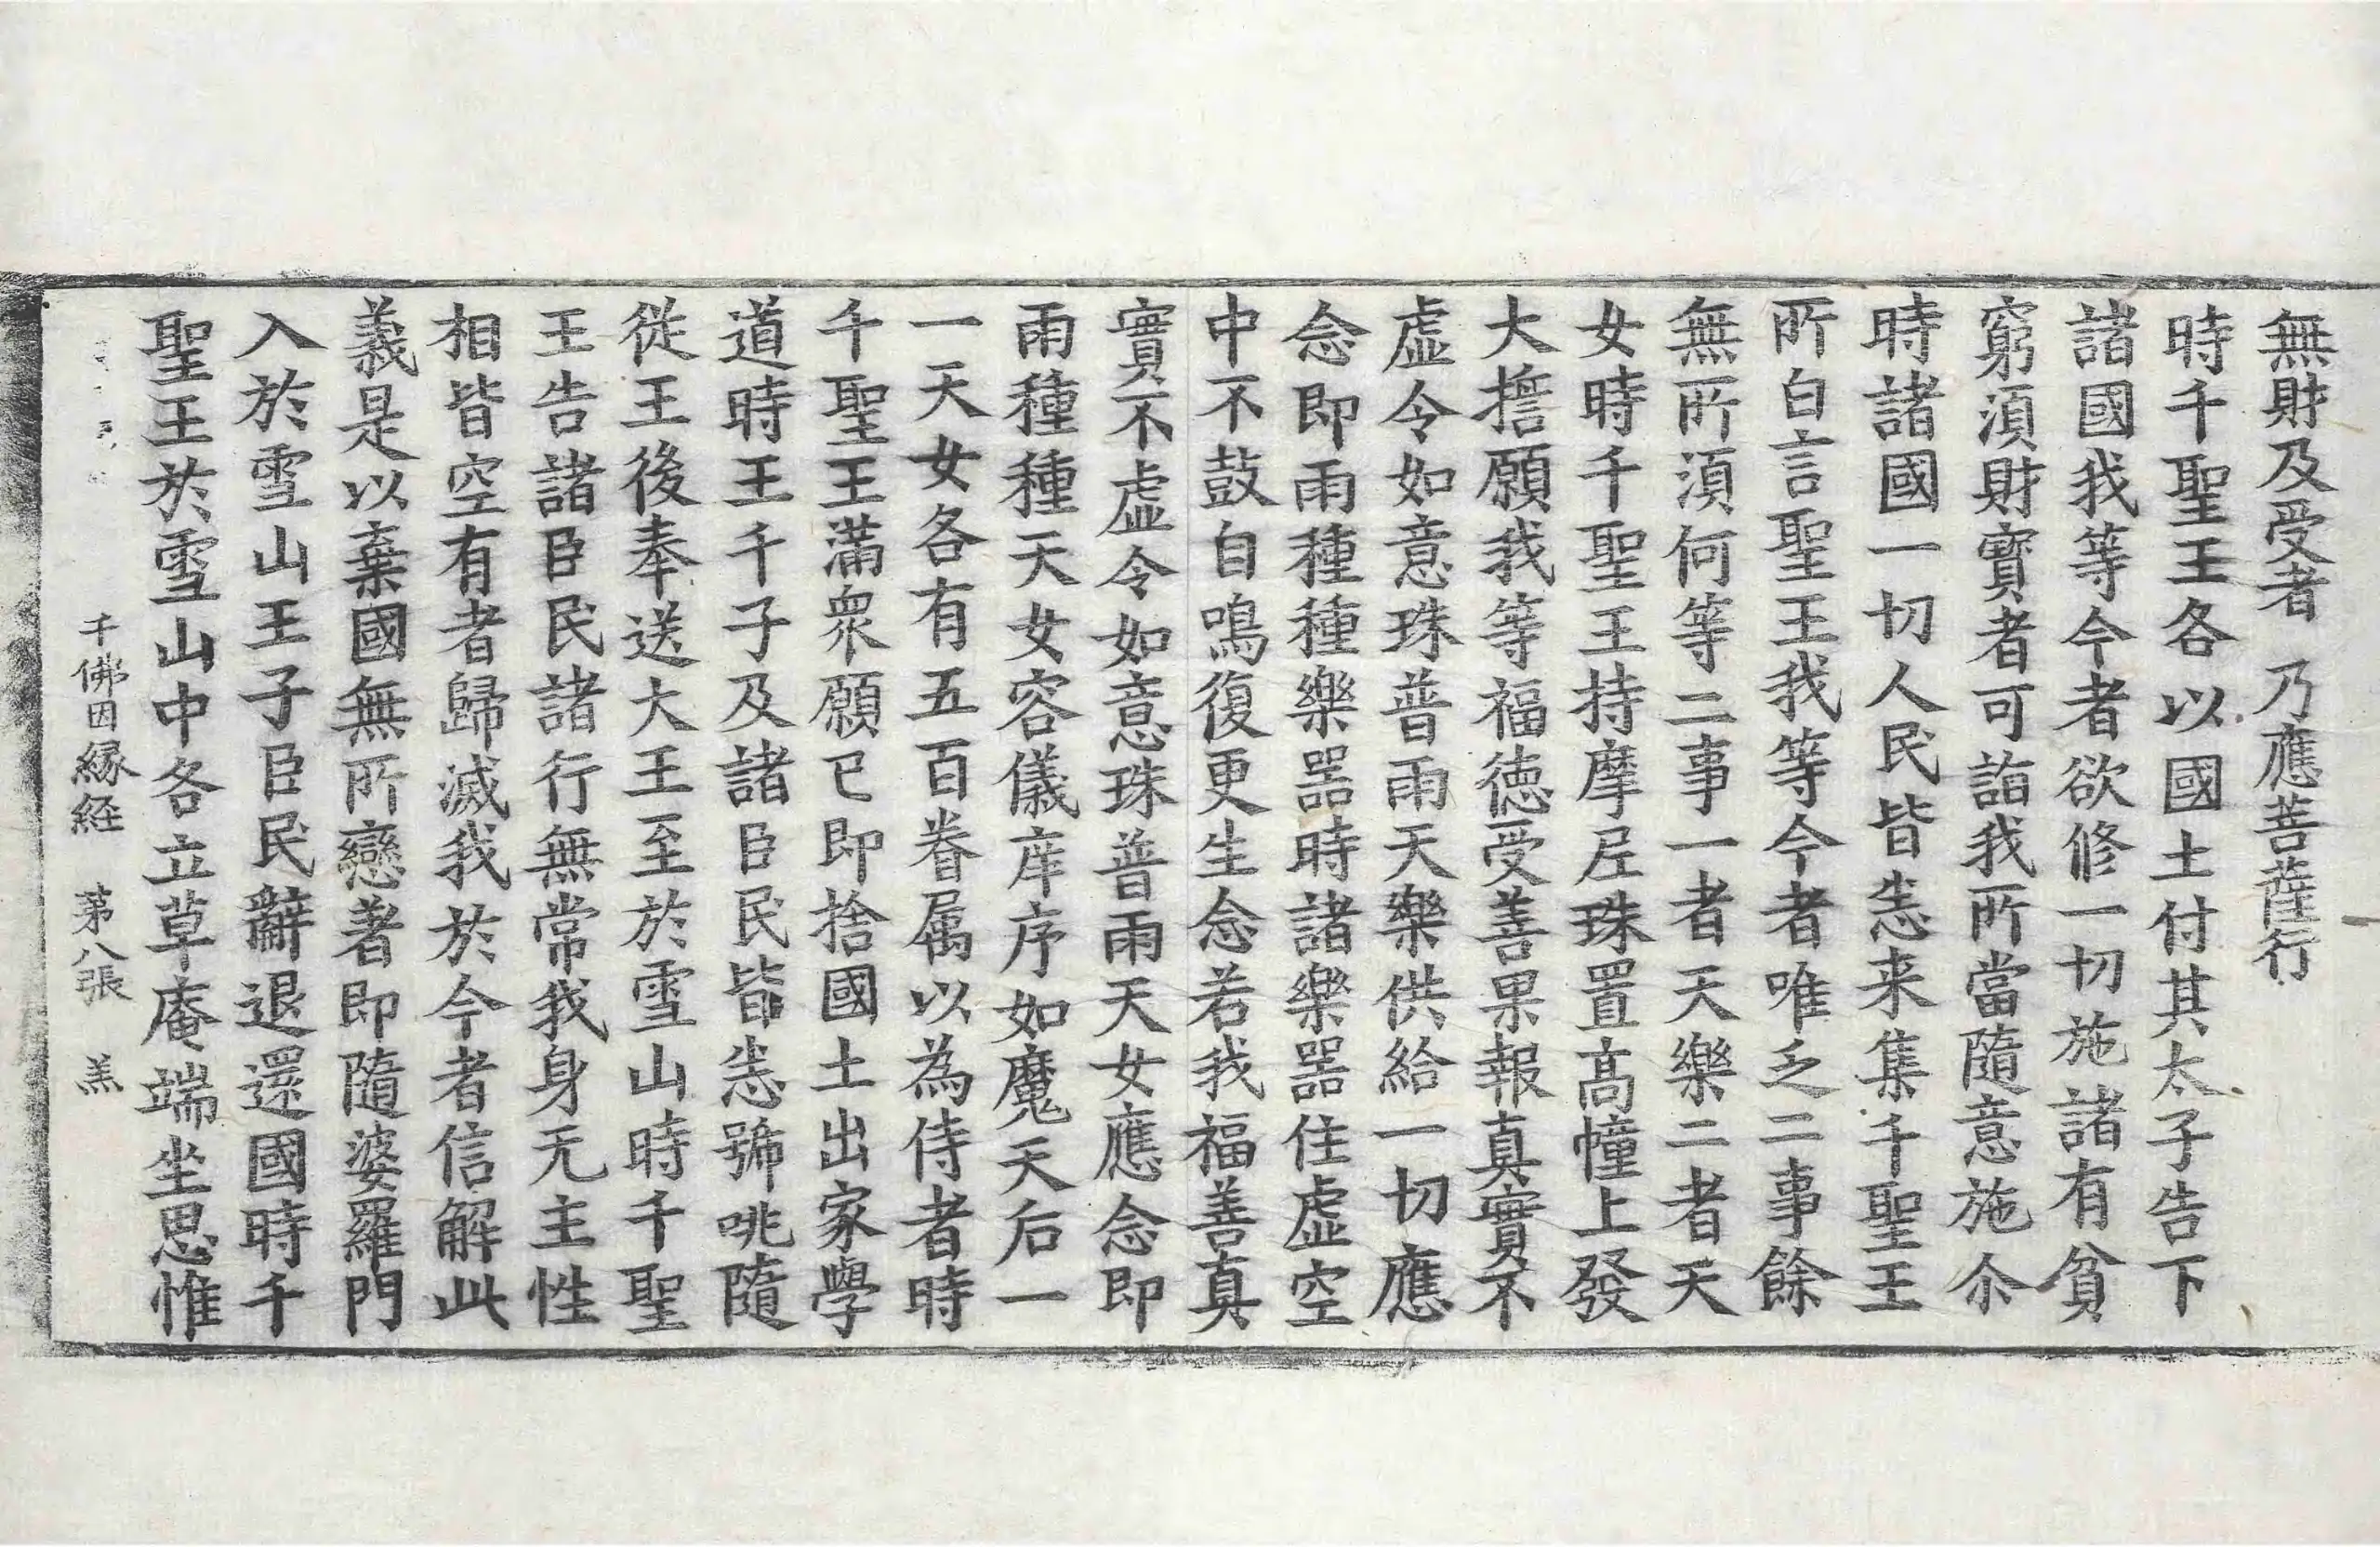 無財及受者　乃應菩薩行
時千聖王各以國土付其太子告下
諸國我等今者欲修一切施諸有貧
窮湏財寳者可詣我所當隨意施尒
時諸國一切人民皆悉来集千聖王
所白言聖王我等今者唯乏二事餘
無所湏何等二事一者天樂二者天
女時千聖王持摩尼珠置高幢上發
大擔願我等福德受善果報真實不
虛令如意珠普雨天樂供給一切應
念即雨種種樂器時諸樂器住虛空
中不鼓自鳴復更生念若我福善真
實不虛令如意珠普雨天女應念即
雨種種天女容儀庠序如魔天后一
一天女各有五百眷属以為侍者時
千聖王滿衆願已即捨國土出家學
道時王千子及諸臣民皆悉號咷隨
従王後奉送大王至於雪山時千聖
王告諸臣民諸行無常我身无主性
相皆空有者歸滅我於今者信解此
義是以棄國無所戀著即隨婆羅門
入於雪山王子臣民辭退還國時千
聖王於雪山中各立草庵端坐思惟
千佛因縁経　第八張　羔